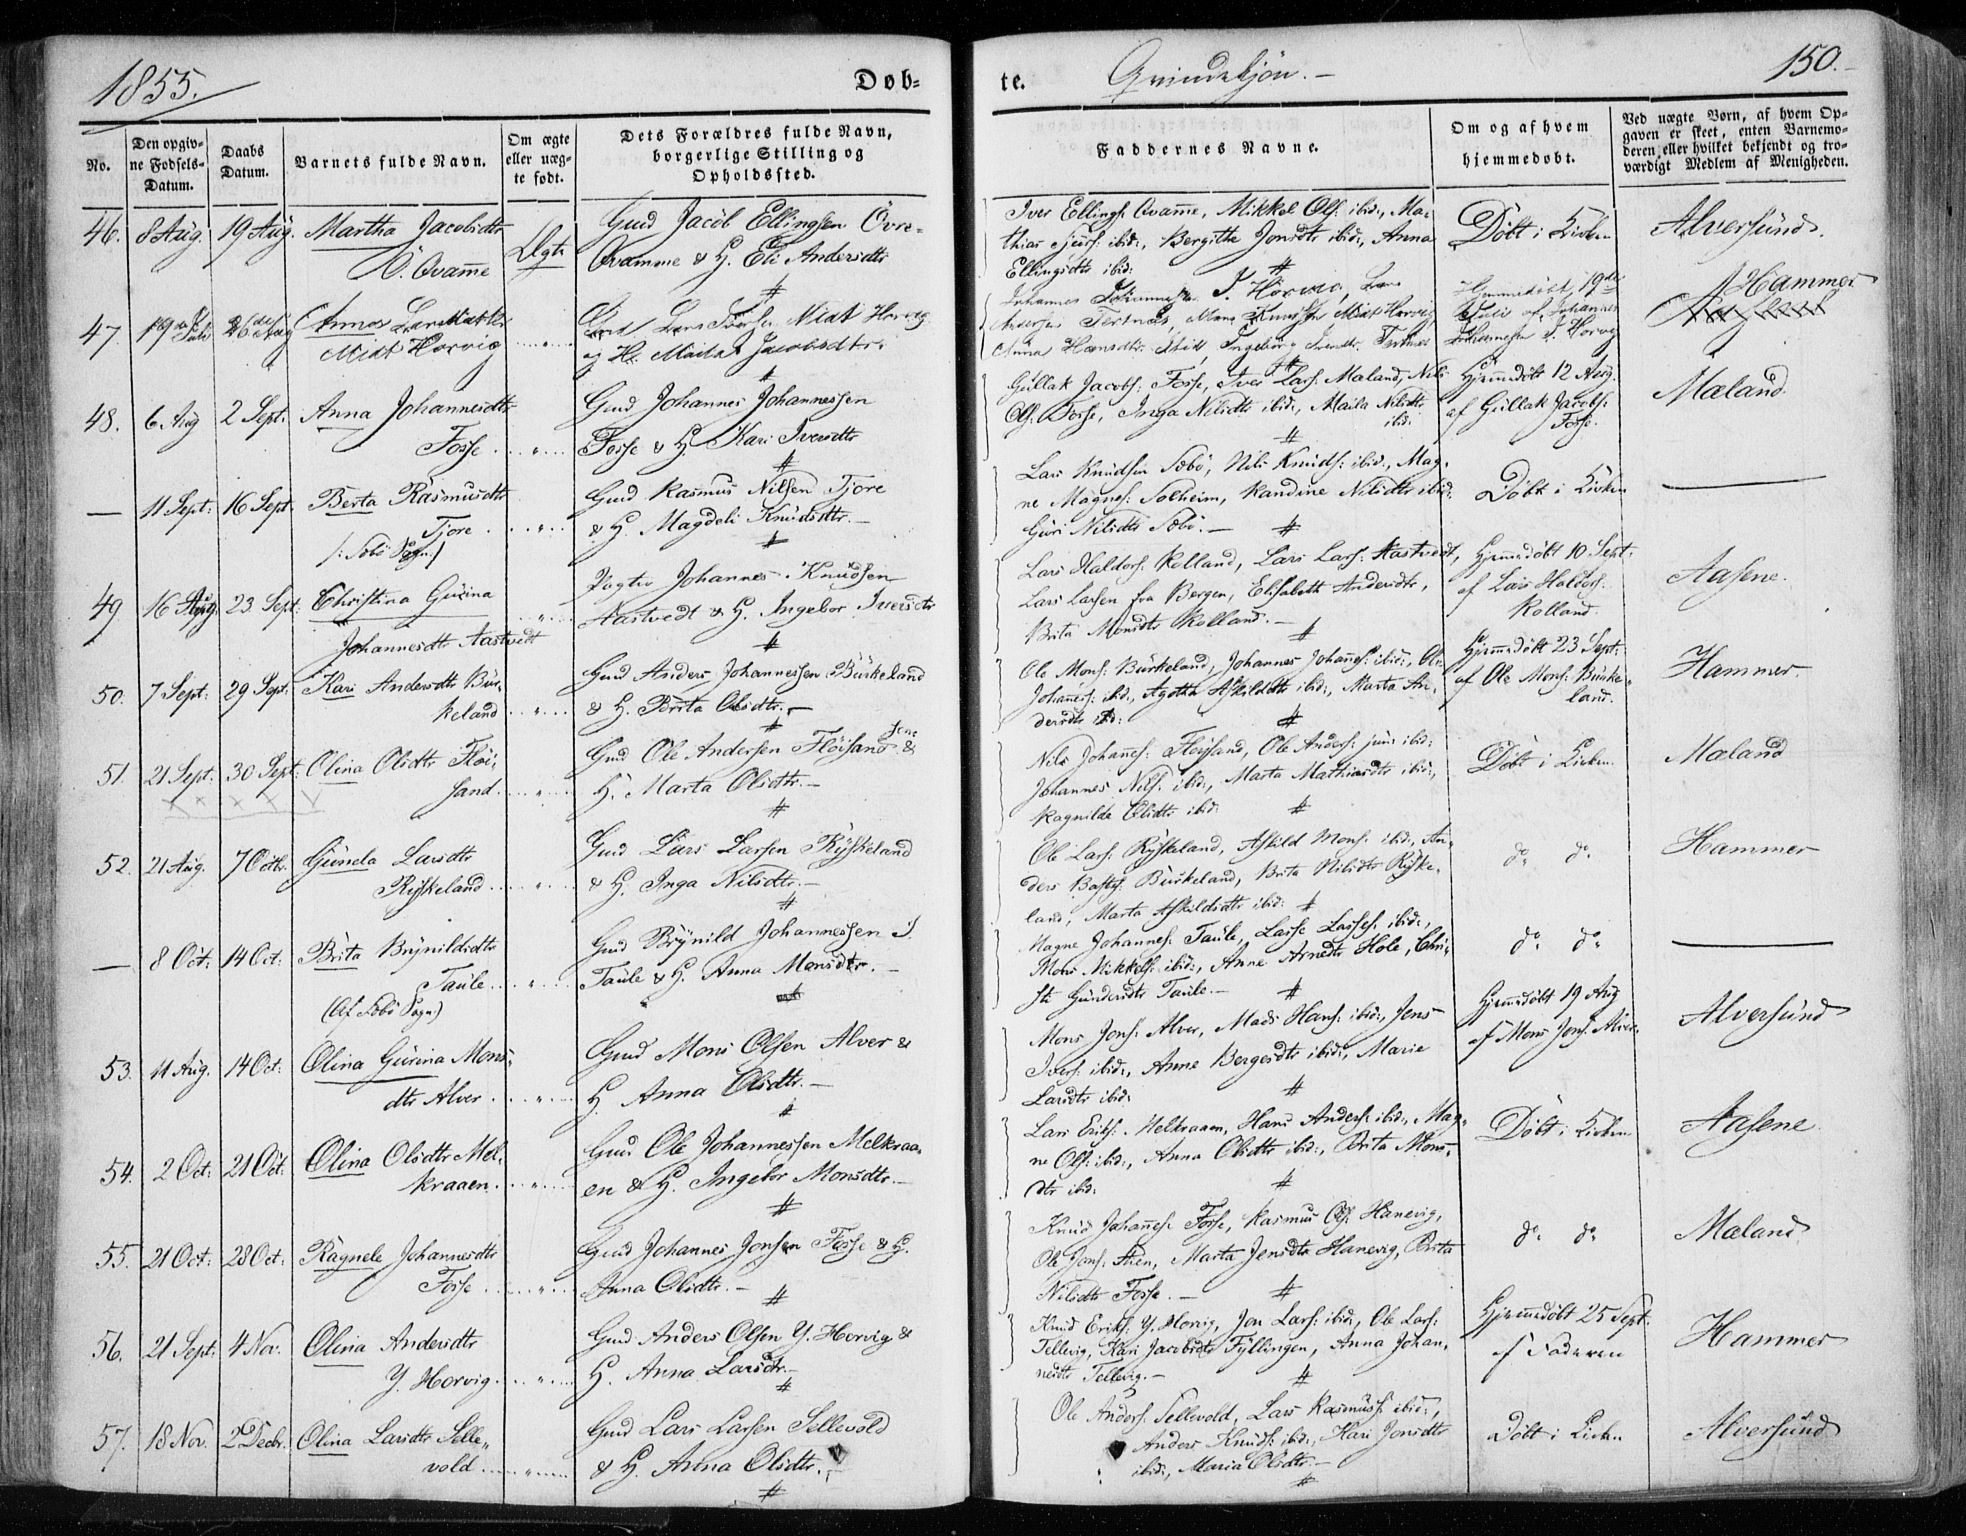 1855.
Døb-
te.
Qvindekjön.
150.
No.
Den opgiv-
ne Fødsels-
Datum.
Daabs
Datum.
Barnets fulde Navn.
Om ægte
eller uæg-
te født.
Dets Forældres fulde Navn,
borgerlige Stilling og
Opholdssted.
Faddernes Navne.
Om og af hvem
hjemmedøbt.
Ved uægte Børn, af hvem Op-
gaven er skeet, enten Barnemo-
deren, eller hvilket bekjendt og tro-
værdigt Medlem af Menigheden.
46. 8 Aug. 19 Aug. Martha Jacobsdtr
Ö. Qvam̄e
Ægte
Gmd Jacob Ellingsen Övre-
Qvamme & H. Eli Andersdtr
Iver Ellings: Qvam̄e, Mikkel Ols: ibid:, Ma-
thias Sjurs: ibid:, Bergitha Jonsdtr ibid:, Anna
Ellingsdtr ibid:
Döbt i Kirken
Alversund.
47. 19de Juli 26de Aug Annes Larsdatter
Midt Horvig
Gmd Lars Iversen Midt Horvig
og H. Maila Jacobsdtr.
Johannes Johannesen I. Horvig, Lars
Andersen Tertnæs, Mons Knudsen Midt Horvig,
Anna Hansdtr ibid, Ingeborg Iversdtr Tertnes
Hjemmedöbt 19de
Juli af Johannes
Johannesen I. Horvig
Hammer
48. 6 Aug 2 Sept: Anna Johannesdtr
Fosse
Gmd Johannes Johannessen
Fosse & H. Kari Iversdtr
Gullak Jacobs: Fosse, Iver Lars: Maland, Nils
Ols: Fosse, Inga Nilsdtr ibid:, Maila Nilsdtr
ibid:
Hjem̄edöbt 12 Aug.
af Gullak Jacobs:
Fosse.
Maland.
— 11 Sept: 16 Sept: Berta Rasmusdtr
Tjore
/: Sæbö Sogn :/
Gmd Rasmus Nilsen Tjore
& H. Magdeli Knudsdtr. —
Lars Knudsen Sæbö, Nils Knuds: ibid:, Mag-
ne Magnes: Solheim, Randine Nilsdtr ibid:
Guri Nilsdtr Sæbö. —
Döbt i Kirken
—
49 16 Aug. 23 Sept: Christina Gurina
Johannesdtr Aastvedt
Johannes Knudsen
Aastvedt & H. Ingebor Iversdtr
Lars Haldors: Rolland, Lars Lars: Aastvedt,
Lars Larsen fra Bergen, Elisabeth Andersdtr,
Brita Monsdtr Rolland. —
Hjem̄edöbt 10 Sept:
af Lars Haldors:
Rolland.
Aasene.
50. 7 Sept: 29 Sept: Kari Andersdtr Bur-
keland
Gmd Anders Johannessen Burkeland
& H. Brita Olsdtr. —
Ole Mons: Burkeland, Johannes Johan̄es: ibid:, Ole
Johan̄es: ibid:, Agatha Askildsdtr ibid:, Marta An-
dersdtr ibid:
Hjem̄edöbt 23 Sept:
af Ole Mons: Burke-
land.
Hammer.
51. 21 Sept. 30 Sept: Olina Olsdtr Flöi-
sand
Gmd Ole Andersen Flöisand sen: &
H. Marta Olsdtr. —
Nils Johan̄es: Flöisand, Ole Anders: jun: ibid:
Johannes Nils: ibid:, Marta Mathiasdtr ibid:,
Ragnilde Olsdtr ibid:
Döbt i Kirken.
Maland
52. 21 Aug. 7 Octbr. Gunela Larsdtr
Ryskeland
Gmd Lars Larsen Ryskeland
& H. Inga Nilsdtr. —
Ole Lars: Ryskeland, Askild Mons: ibid:, An-
ders Bastes: Burkeland, Brita Nilsdtr Ryske-
land, Marta Askildsdtr ibid:
do do
Hammer
— 8 Oct: 14 Oct: Brita Brynildsdtr
Taule
(Af Sæbö Sogn)
Gmd Brynild Johannessen
Taule & H. Anna Monsdtr. —
Magne Johannes: Taule, Lasse Lasses: ibid:,
Mons Mikkels: ibid:, Anne Arnesdtr Hole, Chri-
sti Gundersdtr Taule. —
do do
—
53. 11 Aug. 14 Oct: Olina Gurina Mons-
dtr Alver
Gmd Mons Olsen Alver &
H. Anna Olsdtr. —
Mons Jons: Alver, Mads Hans: ibid:, Jens
Ivers: ibid:, Anne Bergesdtr ibid:, Marie
Larsdtr ibid:
Hjem̄edöbt 19 Aug
af Mons Jons: Alver.
Alversund
54. 2 Oct: 21 Oct: Olina Olsdtr Mel-
kraaen
Gmd Ole Johannessen Melkraa-
en & H. Ingebor Monsdtr. —
Lars Eriks: Melkraaen, Hans Anders: ibid:, Mag-
ne Ols: ibid:, Anna Olsdtr ibid:, Brita Mons-
dtr ibid:
Döbt i Kirken
Aasene.
55. 21 Oct: 28 Oct: Ragnele Johannesdtr
Fosse
Gmd Johannes Jonsen Fosse & H.
Anna Olsdtr. —
Knud Johan̄es: Fosse, Rasmus Ols: Hanevig,
Ole Jons: Steen, Marta Jensdtr Hanevig, Brita
Nilsdtr Fosse. —
do do
Maland
56. 21 Sept: 4 Nov. Olina Andersdtr
Y. Horvig
Gmd Anders Olsen Y. Horvig &
H. Anna Larsdtr. —
Knud Eriks: Y. Horvig, Jon Lars: ibid:, Ole Lars:
Tellevig, Kari Jacobsdtr Fyllingen, Anna Johan-
nesdtr Tellevig. —
Hjem̄edöbt 25 Sept:
af Faderen
Hammer
57. 18 Nov. 2 Decbr. Olina Larsdtr Selle-
vold
Gmd Lars Larsen Sellevold
& H. Anna Olsdtr. —
Ole Anders: Sellevold, Lars Rasmuss: ibid:,
Anders Knuds: ibid:, Kari Jonsdtr
ibid:, Maria Olsdtr. —
Döbt i Kirken
Alversund